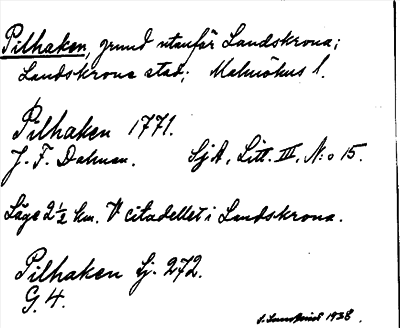 Pilhaken, grund utanför Landskrona;
Landskrona stad; Malmöhus l.
Pilhaken 1771.
J. F. Dalman. SjA, Litt. III, N:o 15.
Läge 2½ km. V citadellet i Landskrona.
Pilhaken Sj. 272.
G. 4.
1938.